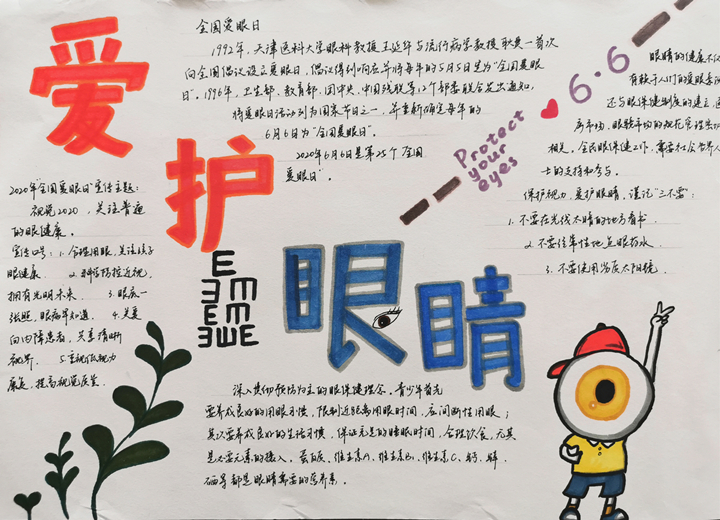 爱护
眼睛
全国爱眼日
1992年,天津医科大学眼科教授王延华与流行病学教授耿贯一首次
向全国倡议设立爱眼日,倡议得到响应并将每年的5月5日定为“全国爱眼
日”。1996年,卫生部、教育部、团中央、中国残联等12个部委联合发出通知,
将爱眼日活动列为国家节日之一,并重新确定每年的
6月6日为“全国爱眼日”。
2020年6月6日是第25个“全国
爱眼日”。
Protect
your
eyes
6.6
眼睛的健康不仅
有赖于人们的爱眼意识
还与眼保健制度的建立、
相关。全民眼保健工作,需要社会各界人
士的支持和参与。
保护视力,爱护眼睛,谨记“三不要”:
1. 不要在光线不晴的地方看书.
2. 不要经常性地点眼药水.
3. 不要使用劣质太阳镜.
2020年“全国爱眼日”宣传主题:
视觉2020,关注普遍
的眼健康。
宣传口号:1. 合理用眼,关注孩子
眼健康 2. 科学防控近视,
拥有光明未来. 3. 眼底一
张照,眼病早知道. 4. 关爱
白内障患者,共享清晰
视界. 5. 重视低视力
康复,提高视觉质量.
E
ƎM
EM
ƎWE
深入贯彻预防为主的眼保健理念。青少年首先
要养成良好的用眼习惯,限制近距离用眼时间,应间断性用眼;
其次要养成良好的生活习惯,保证充足的睡眠时间,合理饮食,尤其
是必要元素的摄入。蛋白质、维生素A、维生素B1、维生素C、钙、锌、
硒等都是眼睛需要的营养素。